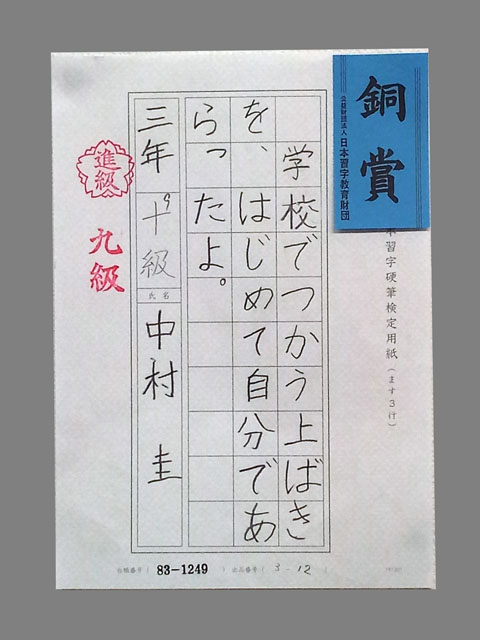 銅賞
公益財団法人 日本習字教育財団
習字硬筆検定用紙（ます３行）
学校でつかう上ばき
を、はじめて自分であ
らったよ。
三年 十級
氏名
中村 圭
進級
九級
83-1249
出品番号（ 3-12 ）